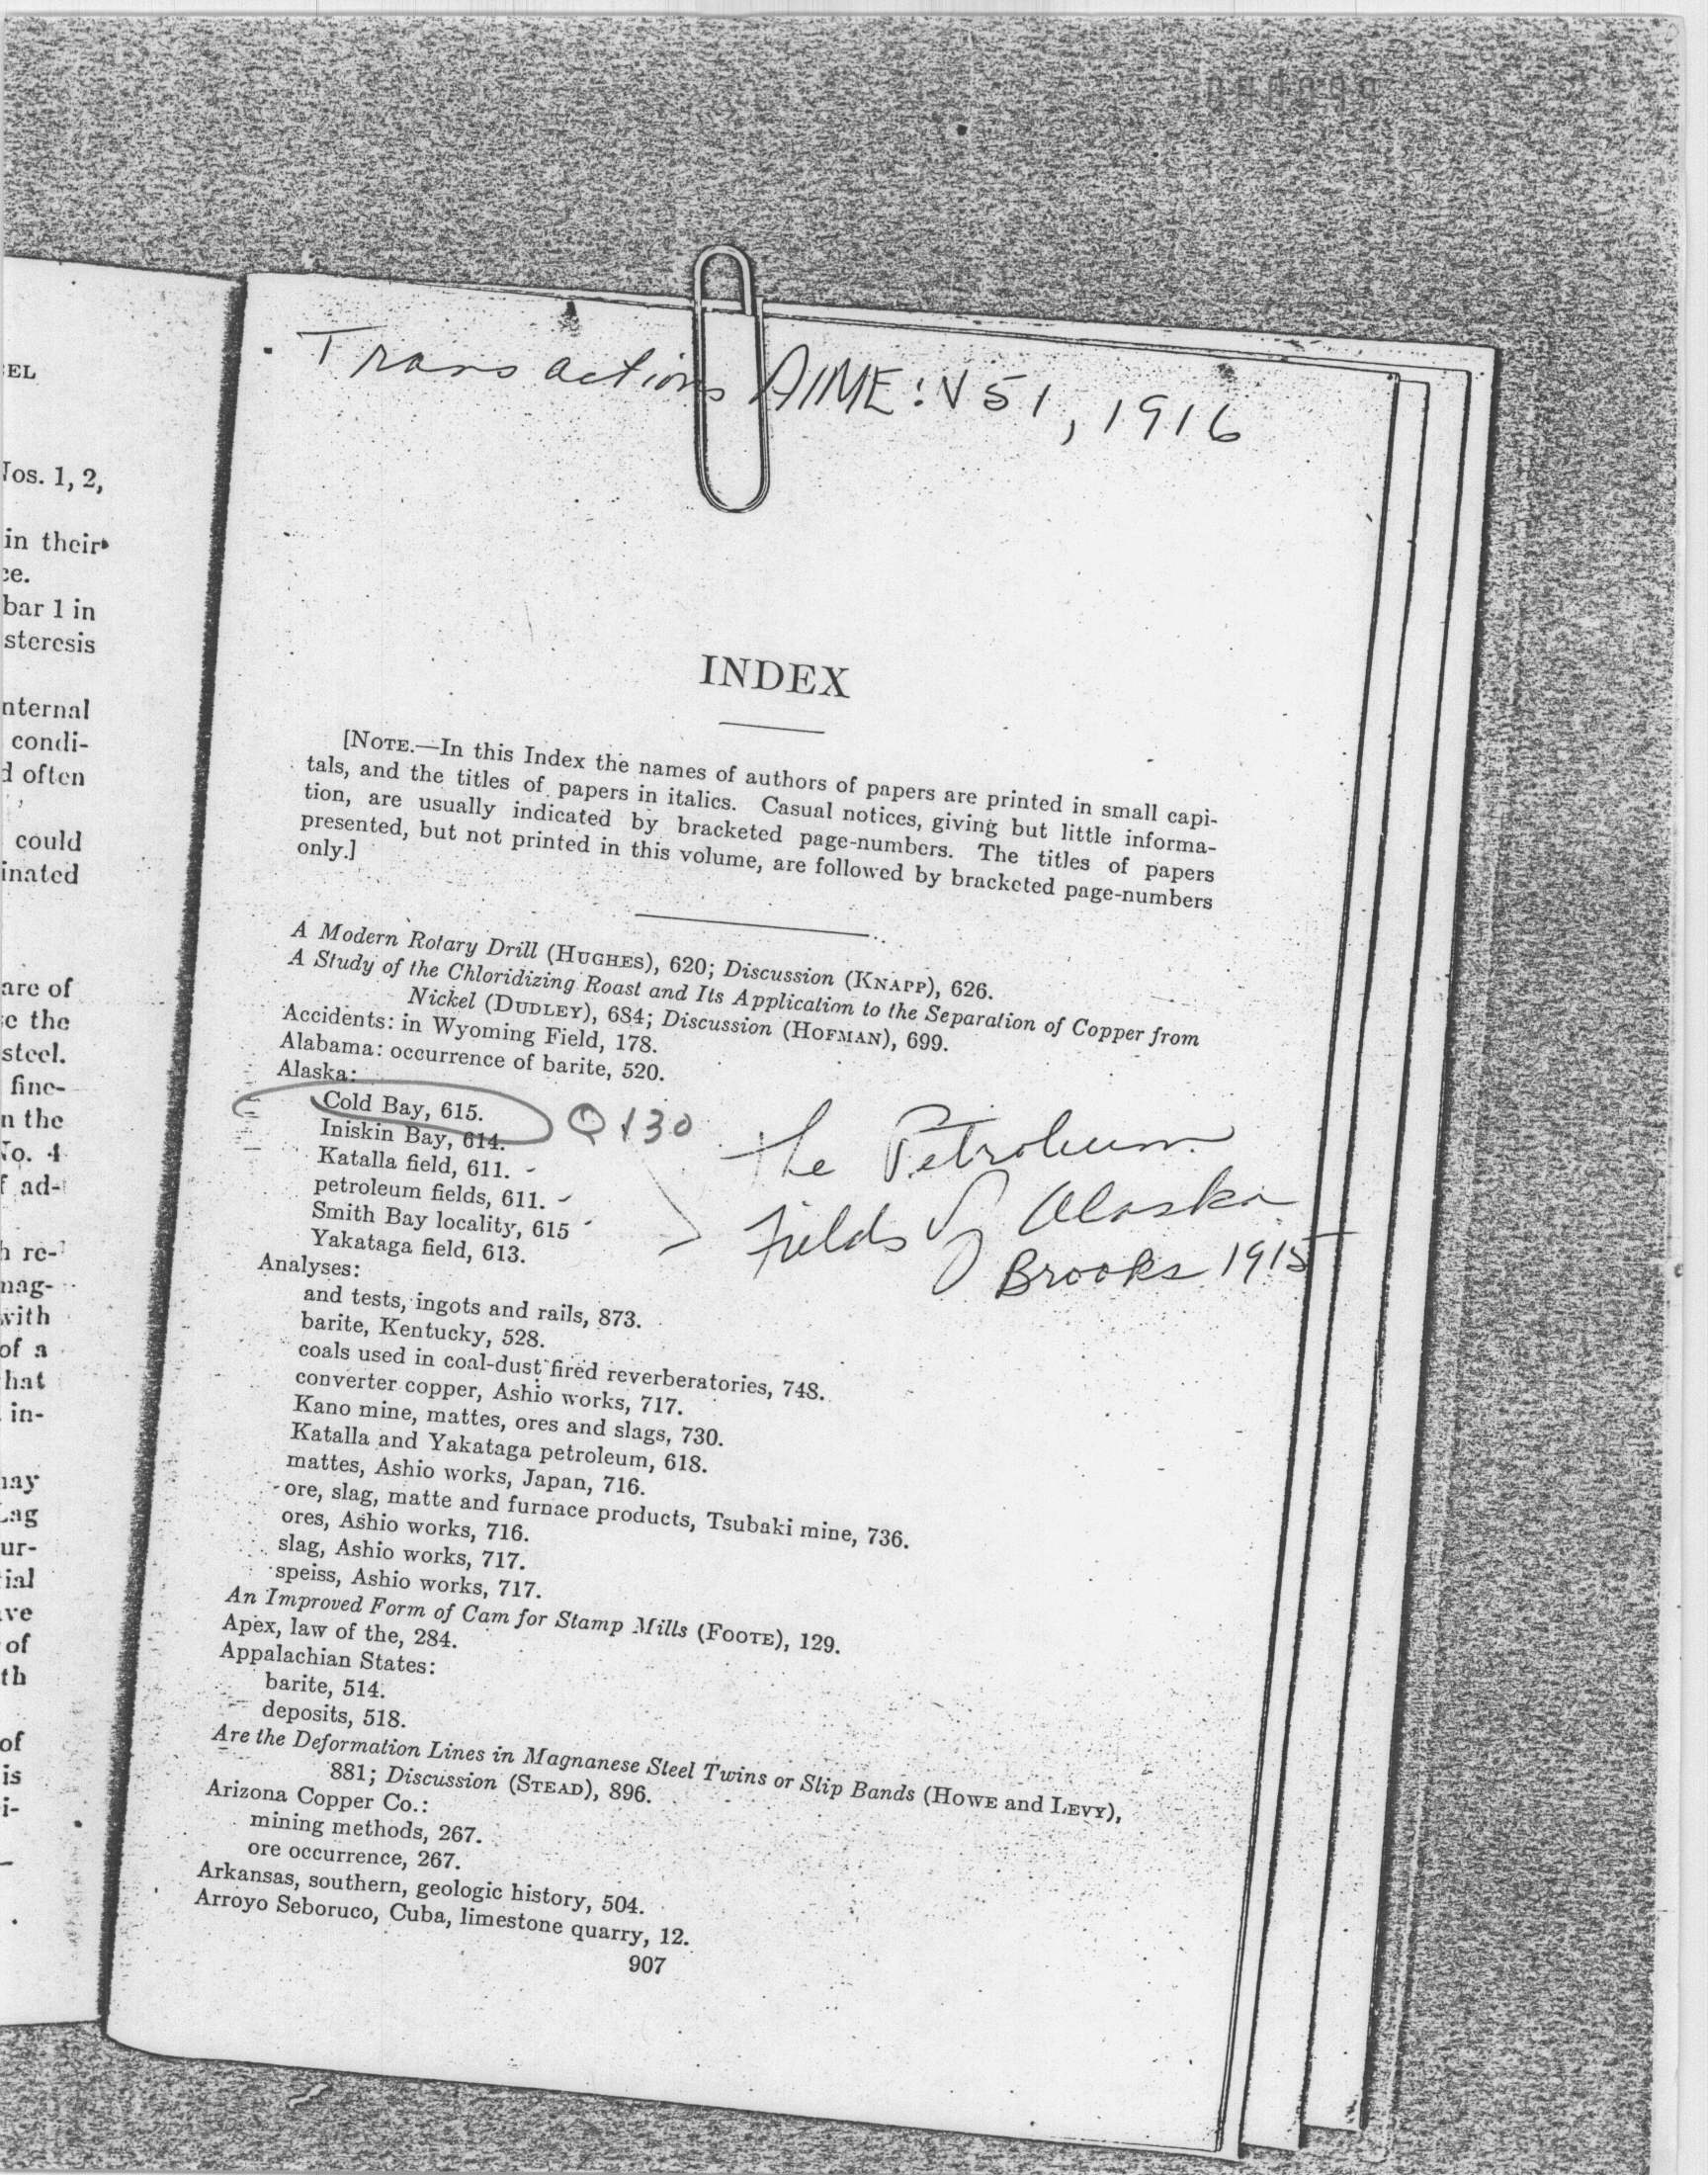 EL
Nos. 1, 2,
in their
ce.
bar 1 in
steresis
nternal
condi-
d often
could
inated
are of
e the
steel.
fine-
n the
No. 4
f ad-
h re-
mag-
with
of a
hat
in-
nay
Lag
ur-
ial
ve
of
th
of
is
i-
Transactions AIME: V 51, 1916
INDEX
[NOTE.—In this Index the names of authors of papers are printed in small capi-
tals, and the titles of papers in italics. Casual notices, giving but little informa-
tion, are usually indicated by bracketed page-numbers. The titles of papers
presented, but not printed in this volume, are followed by bracketed page-numbers
only.]
A Modern Rotary Drill (HUGHES), 620; Discussion (KNAPP), 626.
A Study of the Chloridizing Roast and Its Application to the Separation of Copper from
Nickel (DUDLEY), 684; Discussion (HOFMAN), 699.
Accidents: in Wyoming Field, 178.
Alabama: occurrence of barite, 520.
Alaska:
Cold Bay, 615.
Iniskin Bay, 614.
Katalla field, 611.
petroleum fields, 611.
Smith Bay locality, 615
Yakataga field, 613.
Q 130
The Petroleum
Fields of Alaska
Brooks 1915
Analyses:
and tests, ingots and rails, 873.
barite, Kentucky, 528.
coals used in coal-dust fired reverberatories, 748.
converter copper, Ashio works, 717.
Kano mine, mattes, ores and slags, 730.
Katalla and Yakataga petroleum, 618.
mattes, Ashio works, Japan, 716.
ore, slag, matte and furnace products, Tsubaki mine, 736.
ores, Ashio works, 716.
slag, Ashio works, 717.
speiss, Ashio works, 717.
An Improved Form of Cam for Stamp Mills (FOOTE), 129.
Apex, law of the, 284.
Appalachian States:
barite, 514.
deposits, 518.
Are the Deformation Lines in Magnanese Steel Twins or Slip Bands (HOWE and LEVY),
881; Discussion (STEAD), 896.
Arizona Copper Co.:
mining methods, 267.
ore occurrence, 267.
Arkansas, southern, geologic history, 504.
Arroyo Seboruco, Cuba, limestone quarry, 12.
907